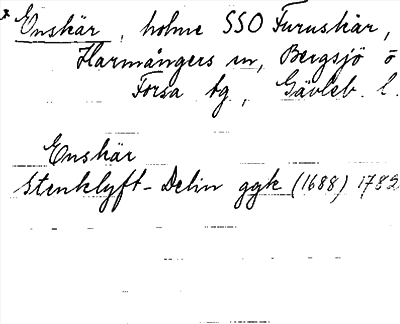 x Enskär, holme SSO Furuskär,
Harmångers sn, Bergsjö o
Forsa tg, Gävleb. l.
Enskär
Stenklyft-Delin ggk (1688) 1782